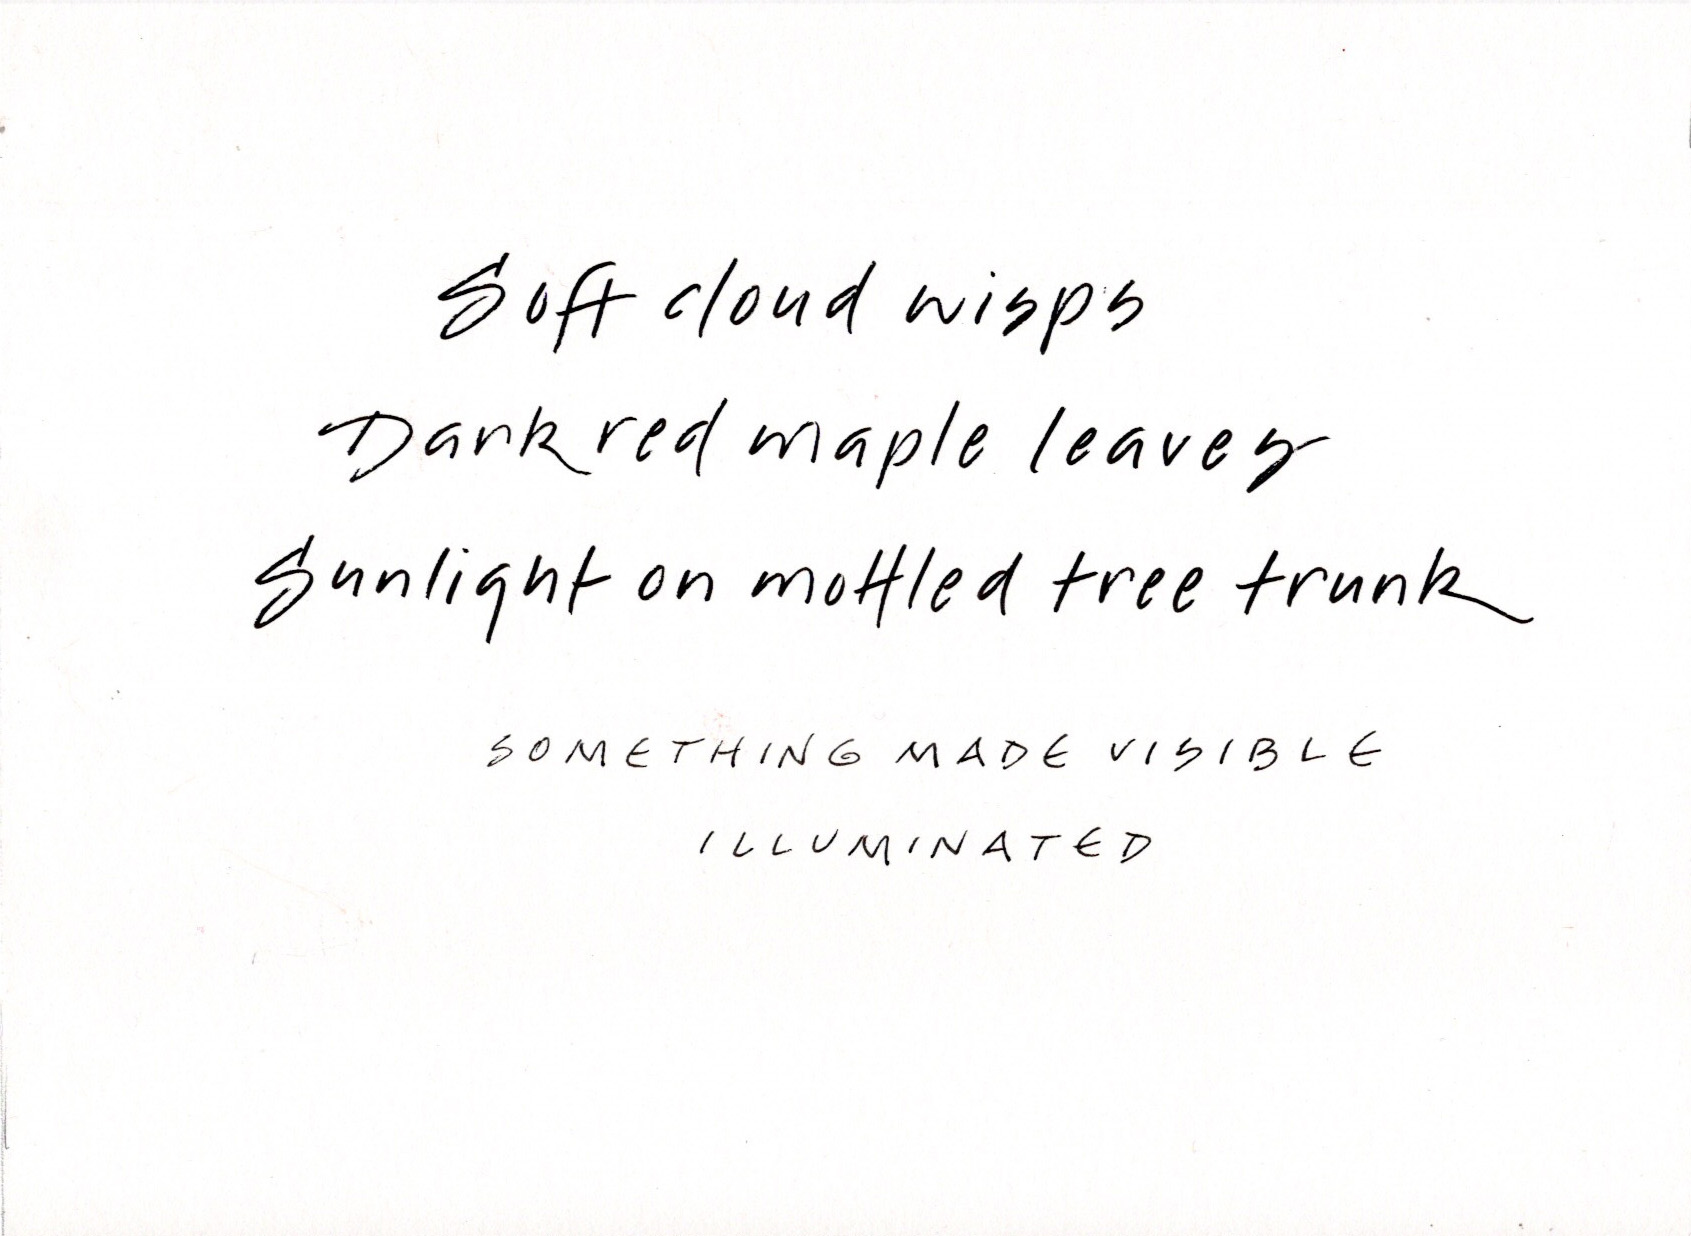 Soft cloud wisps
Dark red maple leaves
Sunlight on mottled tree trunk
SOMETHING MADE VISIBLE
ILLUMINATED